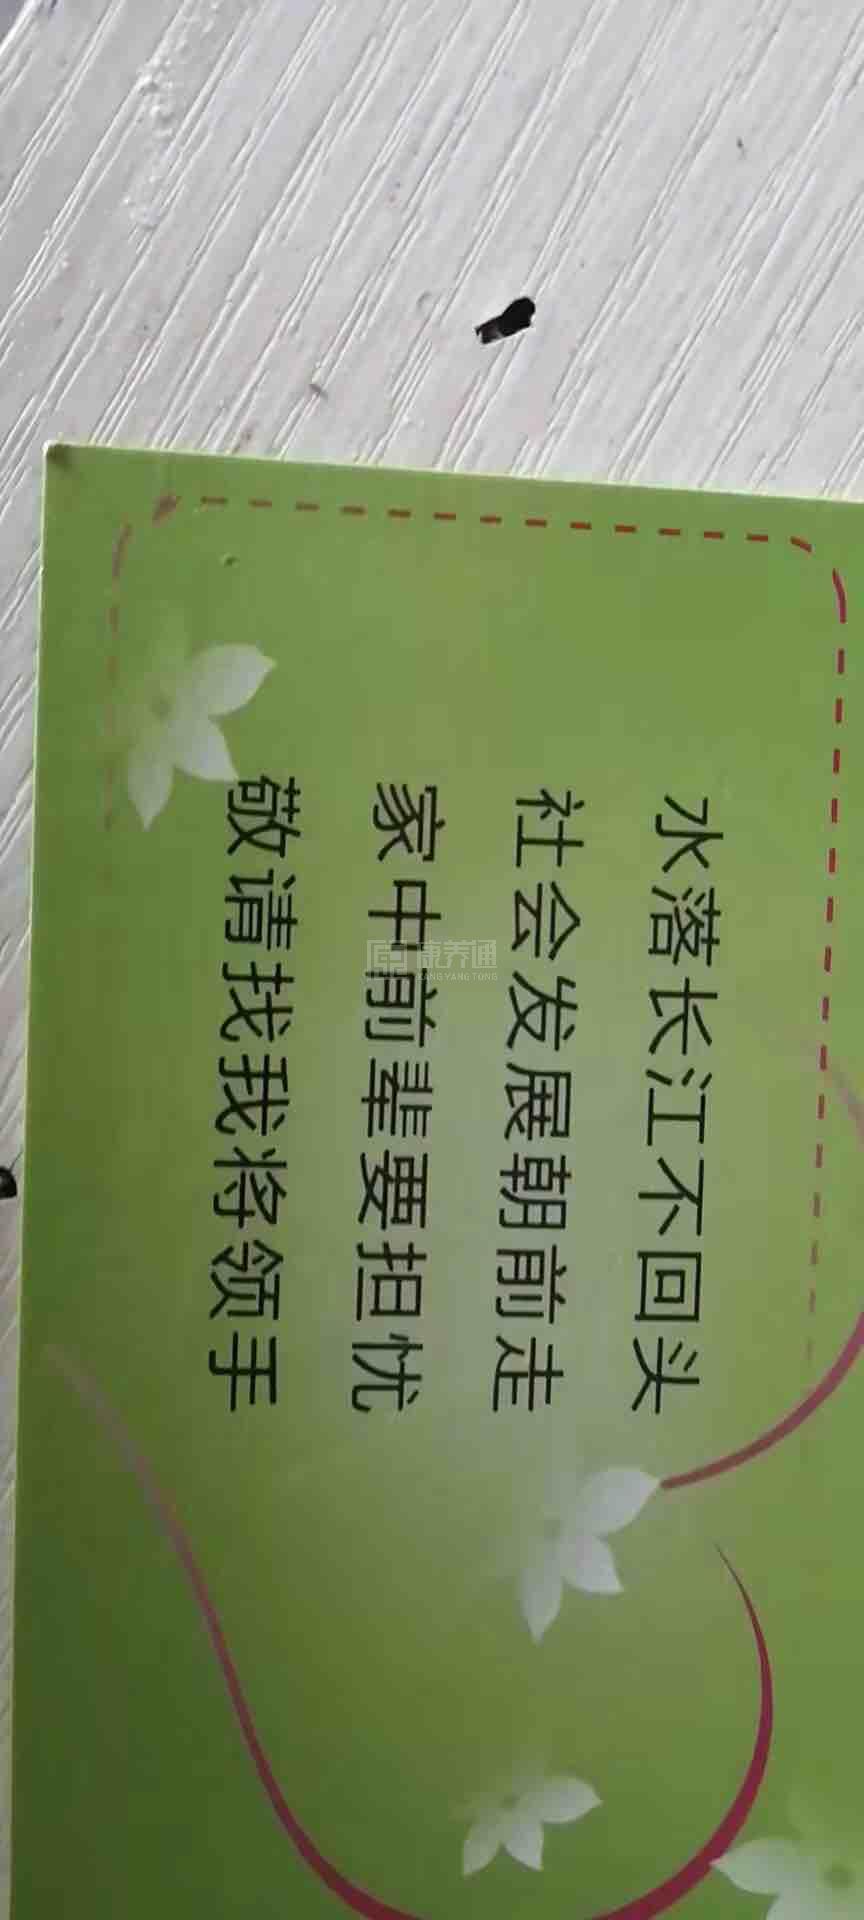 水落长江不回头
社会发展朝前走
家中前辈要担忧
敬请找我将领手
康养通
KANGYANGTONG